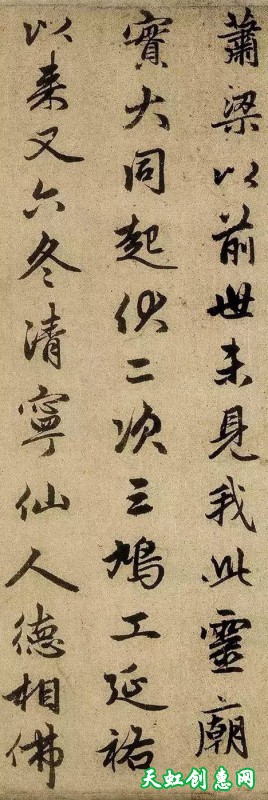 蕭梁以前世未見我此靈廟
實大同起伏二次三鳩工延祐
以來又六冬清寧仙人德相佛
天虹创惠网